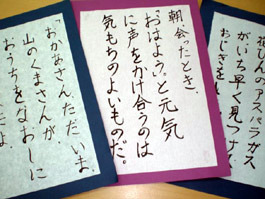 んのアスパラガス
がいち早く見つけ
おじぎをし
朝会ったとき、
「おはよう」と元気
に声をかけ合うのは
気もちのよいものだ。
「おかあさんただいま。
山のくまさんが、
おうちをなおしに
たよ